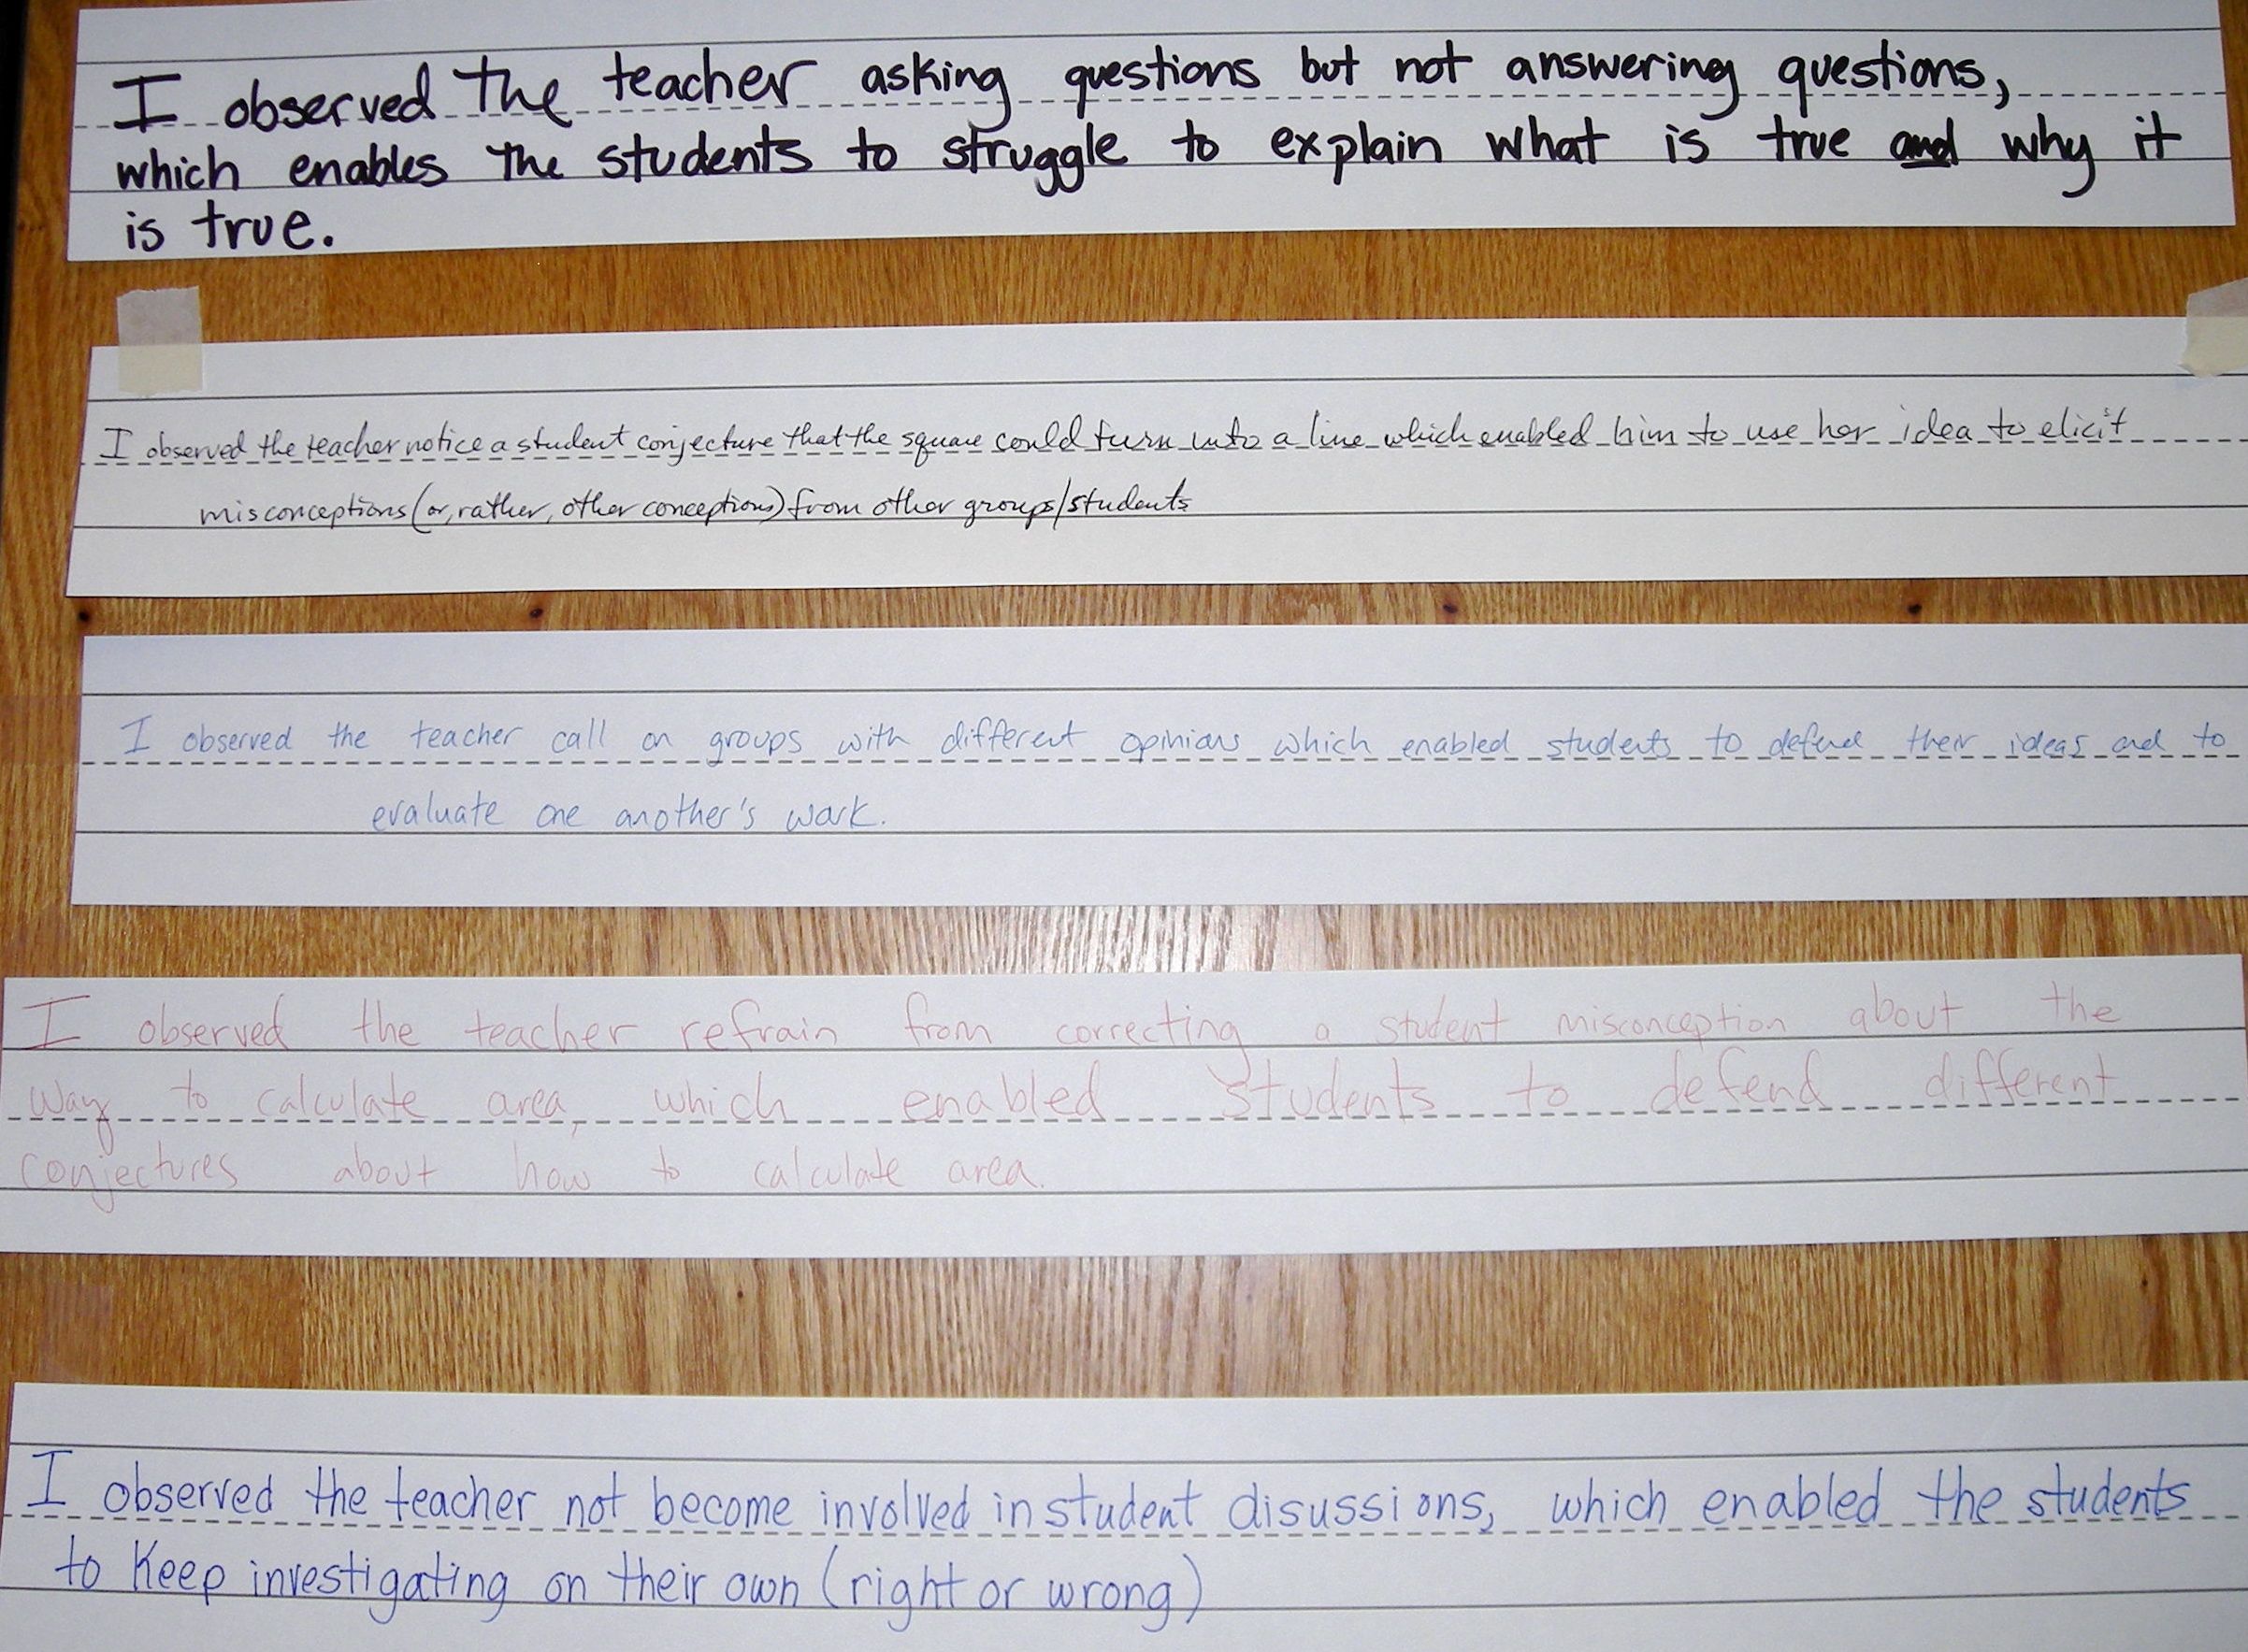 I observed the teacher asking questions but not answering questions,
which enables the students to struggle to explain what is true and why it
is true.
I observed the teacher notice a student conjecture that the square could turn into a line which enabled him to use her idea to elicit
misconceptions (or, rather, other conceptions) from other groups/students
I observed the teacher call on groups with different opinions which enabled students to defend their ideas and to
evaluate one another's work.
I observed the teacher refrain from correcting a student misconception about the
way to calculate area, which enabled students to defend different
conjectures about how to calculate area.
I observed the teacher not become involved in student disussions, which enabled the students
to keep investigating on their own (right or wrong)